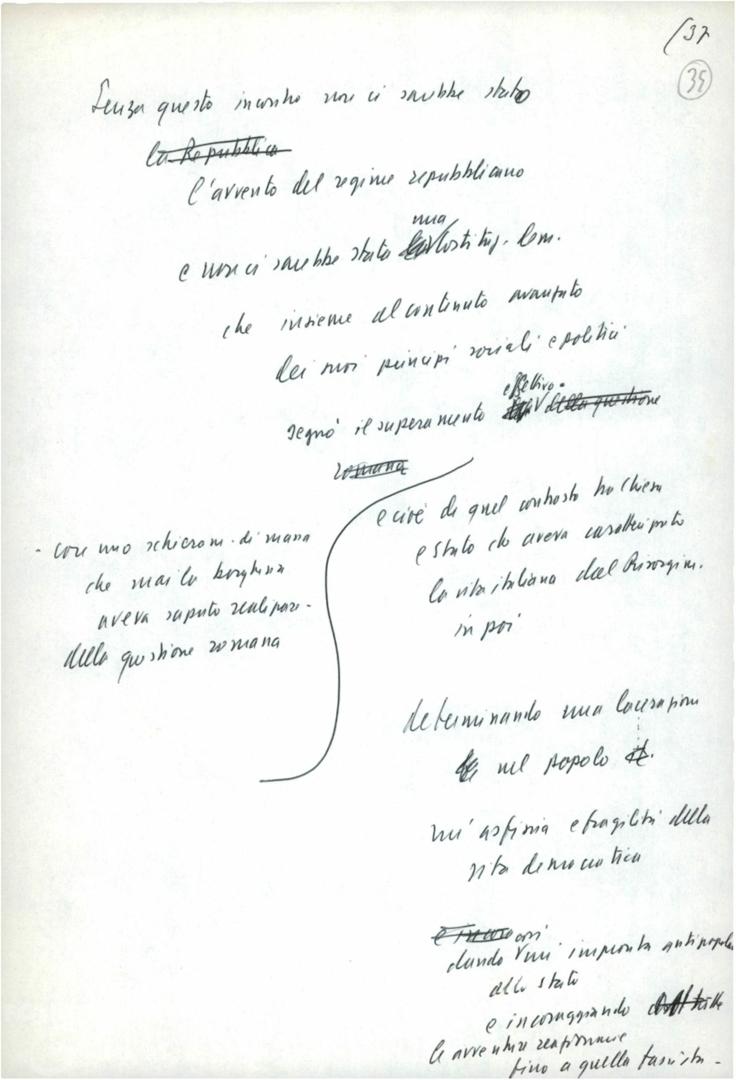 (37
35
Senza questo incontro non ci sarebbe stato
la Repubblica
l'avvento del regime repubblicano
una
e non ci sarebbe stata la Costituz. Rem.
che insieme al contenuto avanzato
dei suoi principi sociali e politici
effettivo.
segnò il superamento della questione
romana
e cioè di quel contrasto tra Chiesa
e Stato che aveva caratterizzato
la vita italiana dal Risorgim.
in poi
- con uno schieram. di massa
che mai la borghesia
aveva saputo realizzare -
della questione romana
determinando una lacerazione
nel popolo it.
un'asfissia e fragilità della
vita democratica
e incora così
dando un'impronta antipopolare
allo stato
e incoraggiando
le avventure reazionarie
fino a quella fascista -